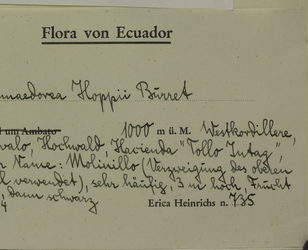 Flora von Ecuador
maedorea Hoppii Burret
l um Ambato 1000 m ü. M. Westkordillere,
valo, Hochwald Hacienda "Tollo Intag",
r Name: Molinillo (Verzweigung des oberen
l verwendet), sehr häufig, 3 m hoch, Frucht
, dann schwarz
4 Erica Heinrichs n. 735